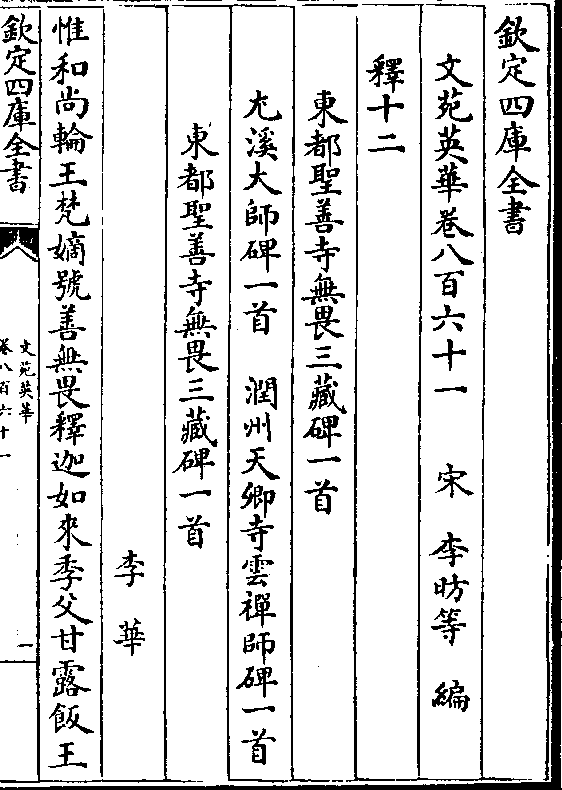 欽定四庫全書
文苑英華卷八百六十一 宋 李昉等 編
釋十二
東都聖善寺無畏三藏碑一首
尤溪大師碑一首 潤州天卿寺雲禪師碑一首
東都聖善寺無畏三藏碑一首
李華
惟和尚輪王梵嫡號善無畏釋迦如來季父甘露飯王
欽定四庫全書
文苑英華
卷八百六十一
一